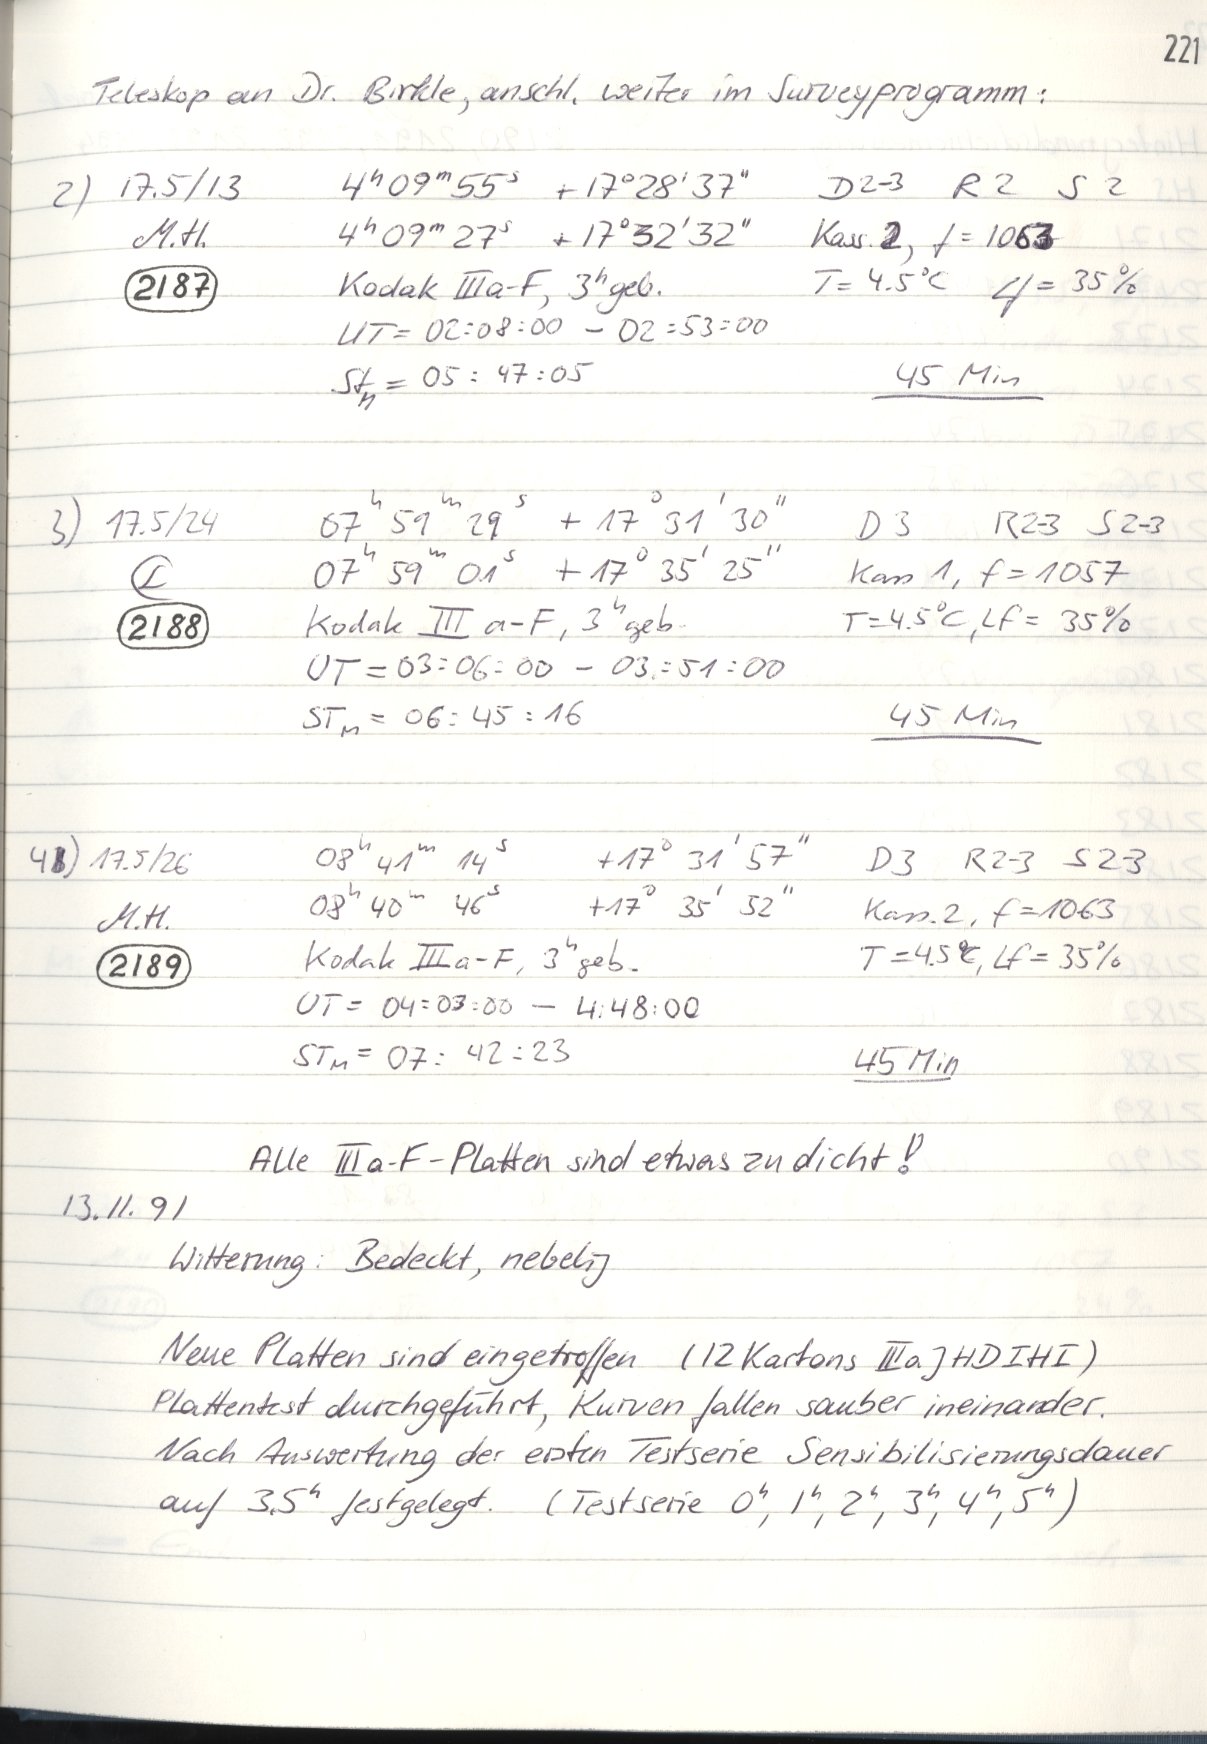 221
Teleskop an Dr. Birkle, anschl. weiter im Surveyprogramm:
2) 17.5/13 4ʰ 09ᵐ 55ˢ +17°28'37" D2-3 R2 S2
M.H. 4ʰ 09ᵐ 27ˢ +17°32'32" Kass. 2, f=1063
2187 Kodak IIIa-F, 3ʰ geb. T=4.5°C Lf=35%
UT=02:08:00 – 02:53:00
St_M = 05:47:05 45 Min
3) 17.5/24 07ʰ 59ᵐ 29ˢ +17° 31' 30" D3 R2-3 S2-3
07ʰ 59ᵐ 01ˢ +17° 35' 25" Kass 1, f=1057
2188 Kodak III a-F, 3ʰ geb. T=4.5°C, Lf=35%
UT=03:06:00 – 03:51:00
ST_M = 06:45:16 45 Min
4) 17.5/26 08ʰ 41ᵐ 14ˢ +17° 31' 57" D3 R2-3 S2-3
M.H. 08ʰ 40ᵐ 46ˢ +17° 35' 52" Kass. 2, f=1063
2189 Kodak IIIa-F, 3ʰ geb. T=4.5°C, Lf=35%
UT= 04:03:00 – 4:48:00
ST_M = 07:42:23 45 Min
Alle IIIa-F-Platten sind etwas zu dicht!
13.11.91
Witterung: Bedeckt, nebelig
Neue Platten sind eingetroffen (12 Kartons IIIaJ HDIHI)
Plattentest durchgeführt, Kurven fallen sauber ineinander.
Nach Auswertung der ersten Testserie Sensibilisierungsdauer
auf 3.5ʰ festgelegt. (Testserie 0ʰ, 1ʰ, 2ʰ, 3ʰ, 4ʰ, 5ʰ)